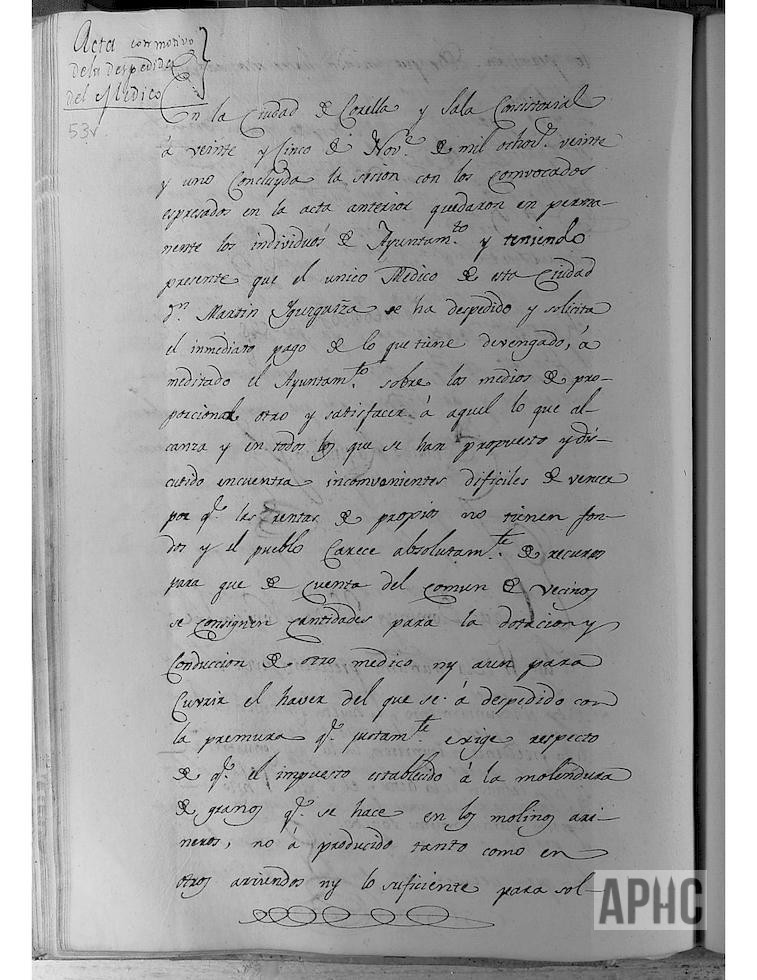 Acta con motivo
dela despedida
del Medico
53v.
En la Ciudad de Corella y Sala Consistorial
á veinte y Cinco de Novᵉ. de mil ochosˢ. veinte
y uno Concluyda la sesion con los Convocados
espresados en la acta anterior quedaron en perma-
nente los individuos de Ayuntamᵗᵒ. y teniendo
presente que el unico Medico de esta Ciudad
Dⁿ. Martin Yzurguiza se ha despedido y solicita
el inmediato pago de lo que tiene devengado, á
meditado el Ayuntamᵗᵒ. sobre los medios de pro-
porcional otro y satisfacer á aquel lo que al-
canza y en todos los que se han propuesto y dis-
cutido encuentra inconvenientes dificiles de vencer
por q.ᵉ las rentas de propios no tienen fon-
dos y el pueblo Carece absolutamᵗᵉ. de recursos
para que de cuenta del comun de vecinos
se consignen Cantidades para la dotacion y
Conduccion de otro medico ny aun para
Cuvrir el haver del que se á despedido con
la premura q.ᵉ justamᵗᵉ exige respecto
de q.ᵉ el impuesto establecido á la molendura
de granos q.ᵉ se hace en los molinos ari-
neros, no á producido tanto como en
otros ariendos ny lo suficiente para sol-
APHC